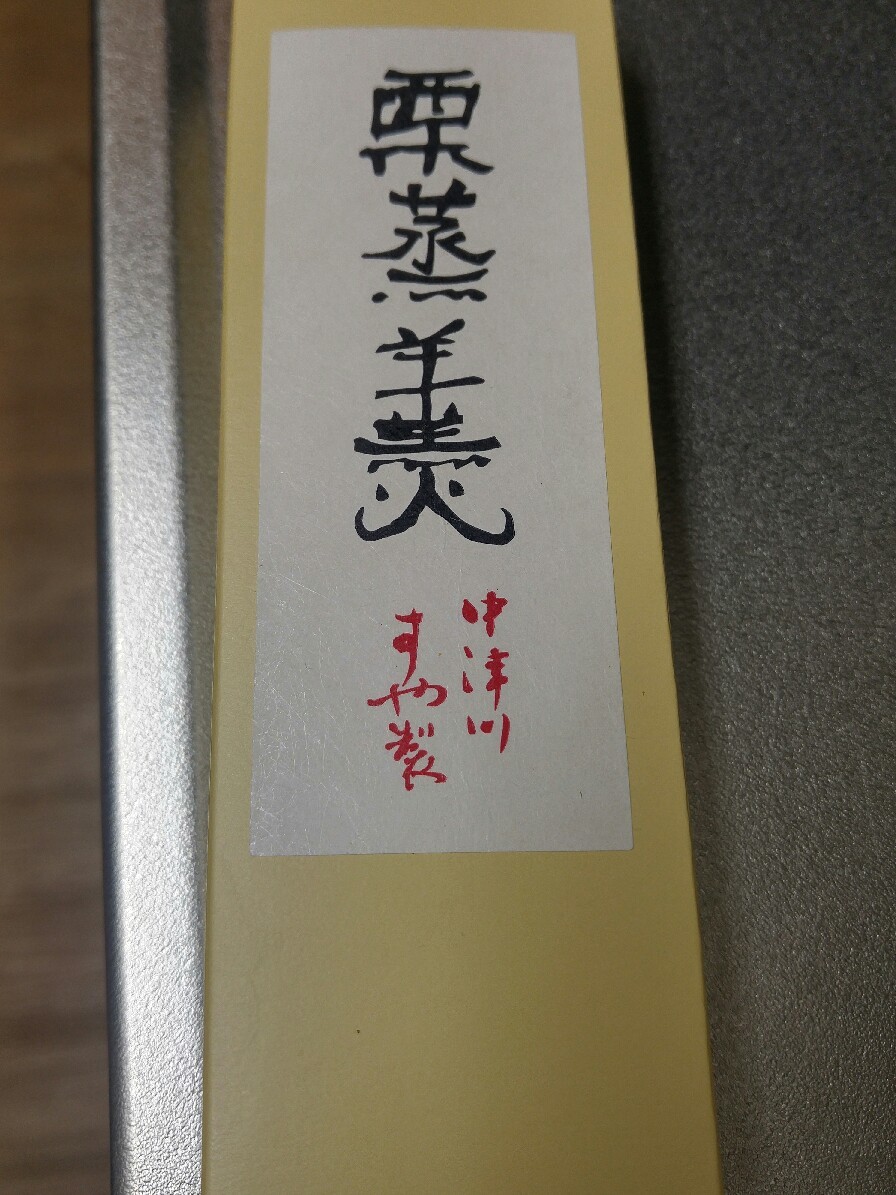 栗蒸羊羹
中津川
すや製